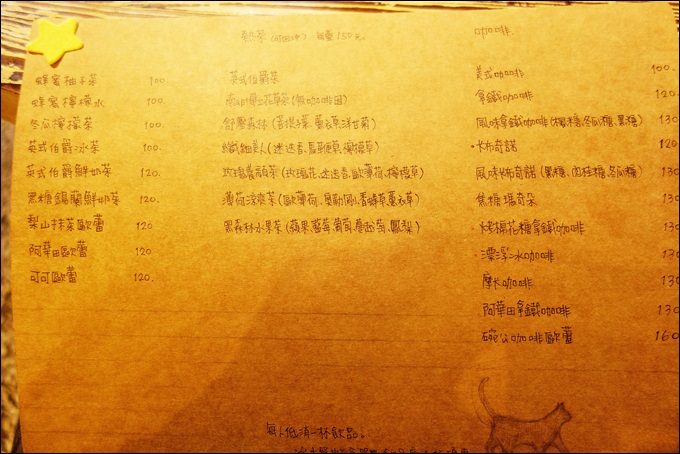 蜂蜜柚子茶 100.
蜂蜜檸檬水 100.
冬瓜檸檬茶 100.
英式伯爵冰茶 100.
英式伯爵鮮奶茶 120.
黑糖錫蘭鮮奶茶 120.
梨山抹茶歐蕾 120
阿華田歐蕾 120.
可可歐蕾 120.
熱茶 每壺150元.
英式伯爵茶
花草茶(無咖啡因)
舒壓森林(菩提子葉、薰衣草、洋甘菊)
纖細美人(迷迭香、馬鞭草、檸檬草)
玫瑰養顏茶(玫瑰花、迷迭香、歐薄荷、檸檬草)
薄荷涼爽茶(歐薄荷、奧勒岡、香蜂草、薰衣草)
黑森林水果茶(蘋果、藍莓、葡萄、蔓越莓、鳳梨)
咖啡.
美式咖啡 100.
拿鐵咖啡 120.
風味拿鐵咖啡(楓糖、冬瓜糖、黑糖) 130
卡布奇諾 120.
風味卡布奇諾(黑糖、肉桂糖、冬瓜糖) 130
焦糖瑪奇朵 130
烤棉花糖拿鐵咖啡 130
漂浮冰咖啡 130
摩卡咖啡 130
阿華田拿鐵咖啡 130
碗公咖啡歐蕾 160
每人低消一杯飲品。